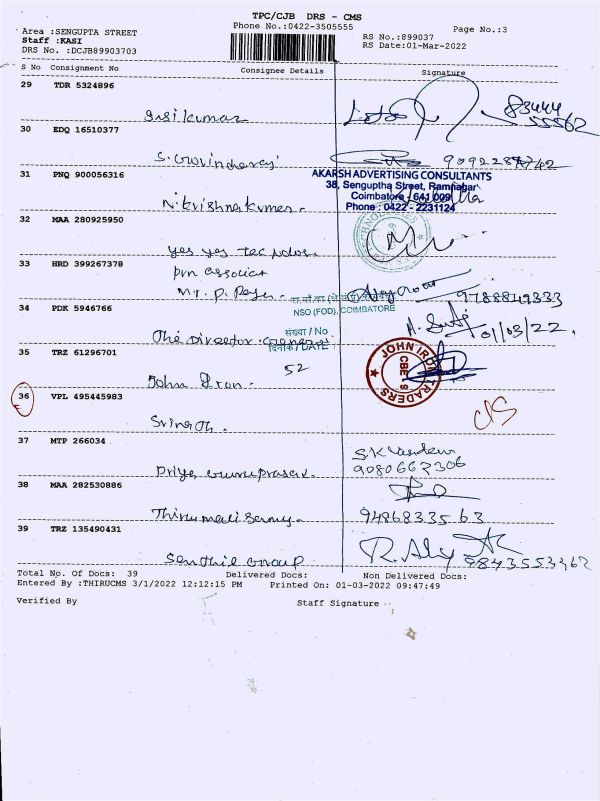 TPC/CJB DRS - CMS
Phone No.:0422-3505555
Page No.:3
Area :SENGUPTA STREET
Staff :KASI
DRS No. :DCJB89903703
RS No.:899037
RS Date:01-Mar-2022
S No Consignment No Consignee Details Signature
29 TDR 5324896
Sasikumar
83444
55562
30 EDQ 16510377
S. Govindaraj
31 PNQ 900056316
AKARSH ADVERTISING CONSULTANTS
38, Senguptha Street, Ramnagar
Coimbatore - 641 009
Phone : 0422 - 2231124
N. Krishnakumar.
32 MAA 280925950
yes yes
33 HRD 399267378
pvn associat
9788849333
NSO (FOD), COIMBATORE
34 PDK 5946766
01/03/22,
संख्या / No
दिनांक / DATE
The Director General
35 TRZ 61296701
52
JOHN IRON TRADERS
John Iron.
36 VPL 495445983
Srinath.
37 MTP 266034
9080662306
Priya Guruprasad.
38 MAA 282530886
Thirumalisamy. 9486833563
39 TRZ 135490431
Senthil Group
Total No. Of Docs: 39 Delivered Docs: Non Delivered Docs:
Entered By :THIRUCMS 3/1/2022 12:12:15 PM Printed On: 01-03-2022 09:47:49
Verified By Staff Signature